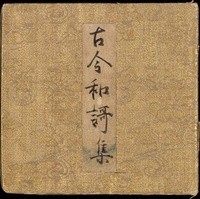 古今和謌集